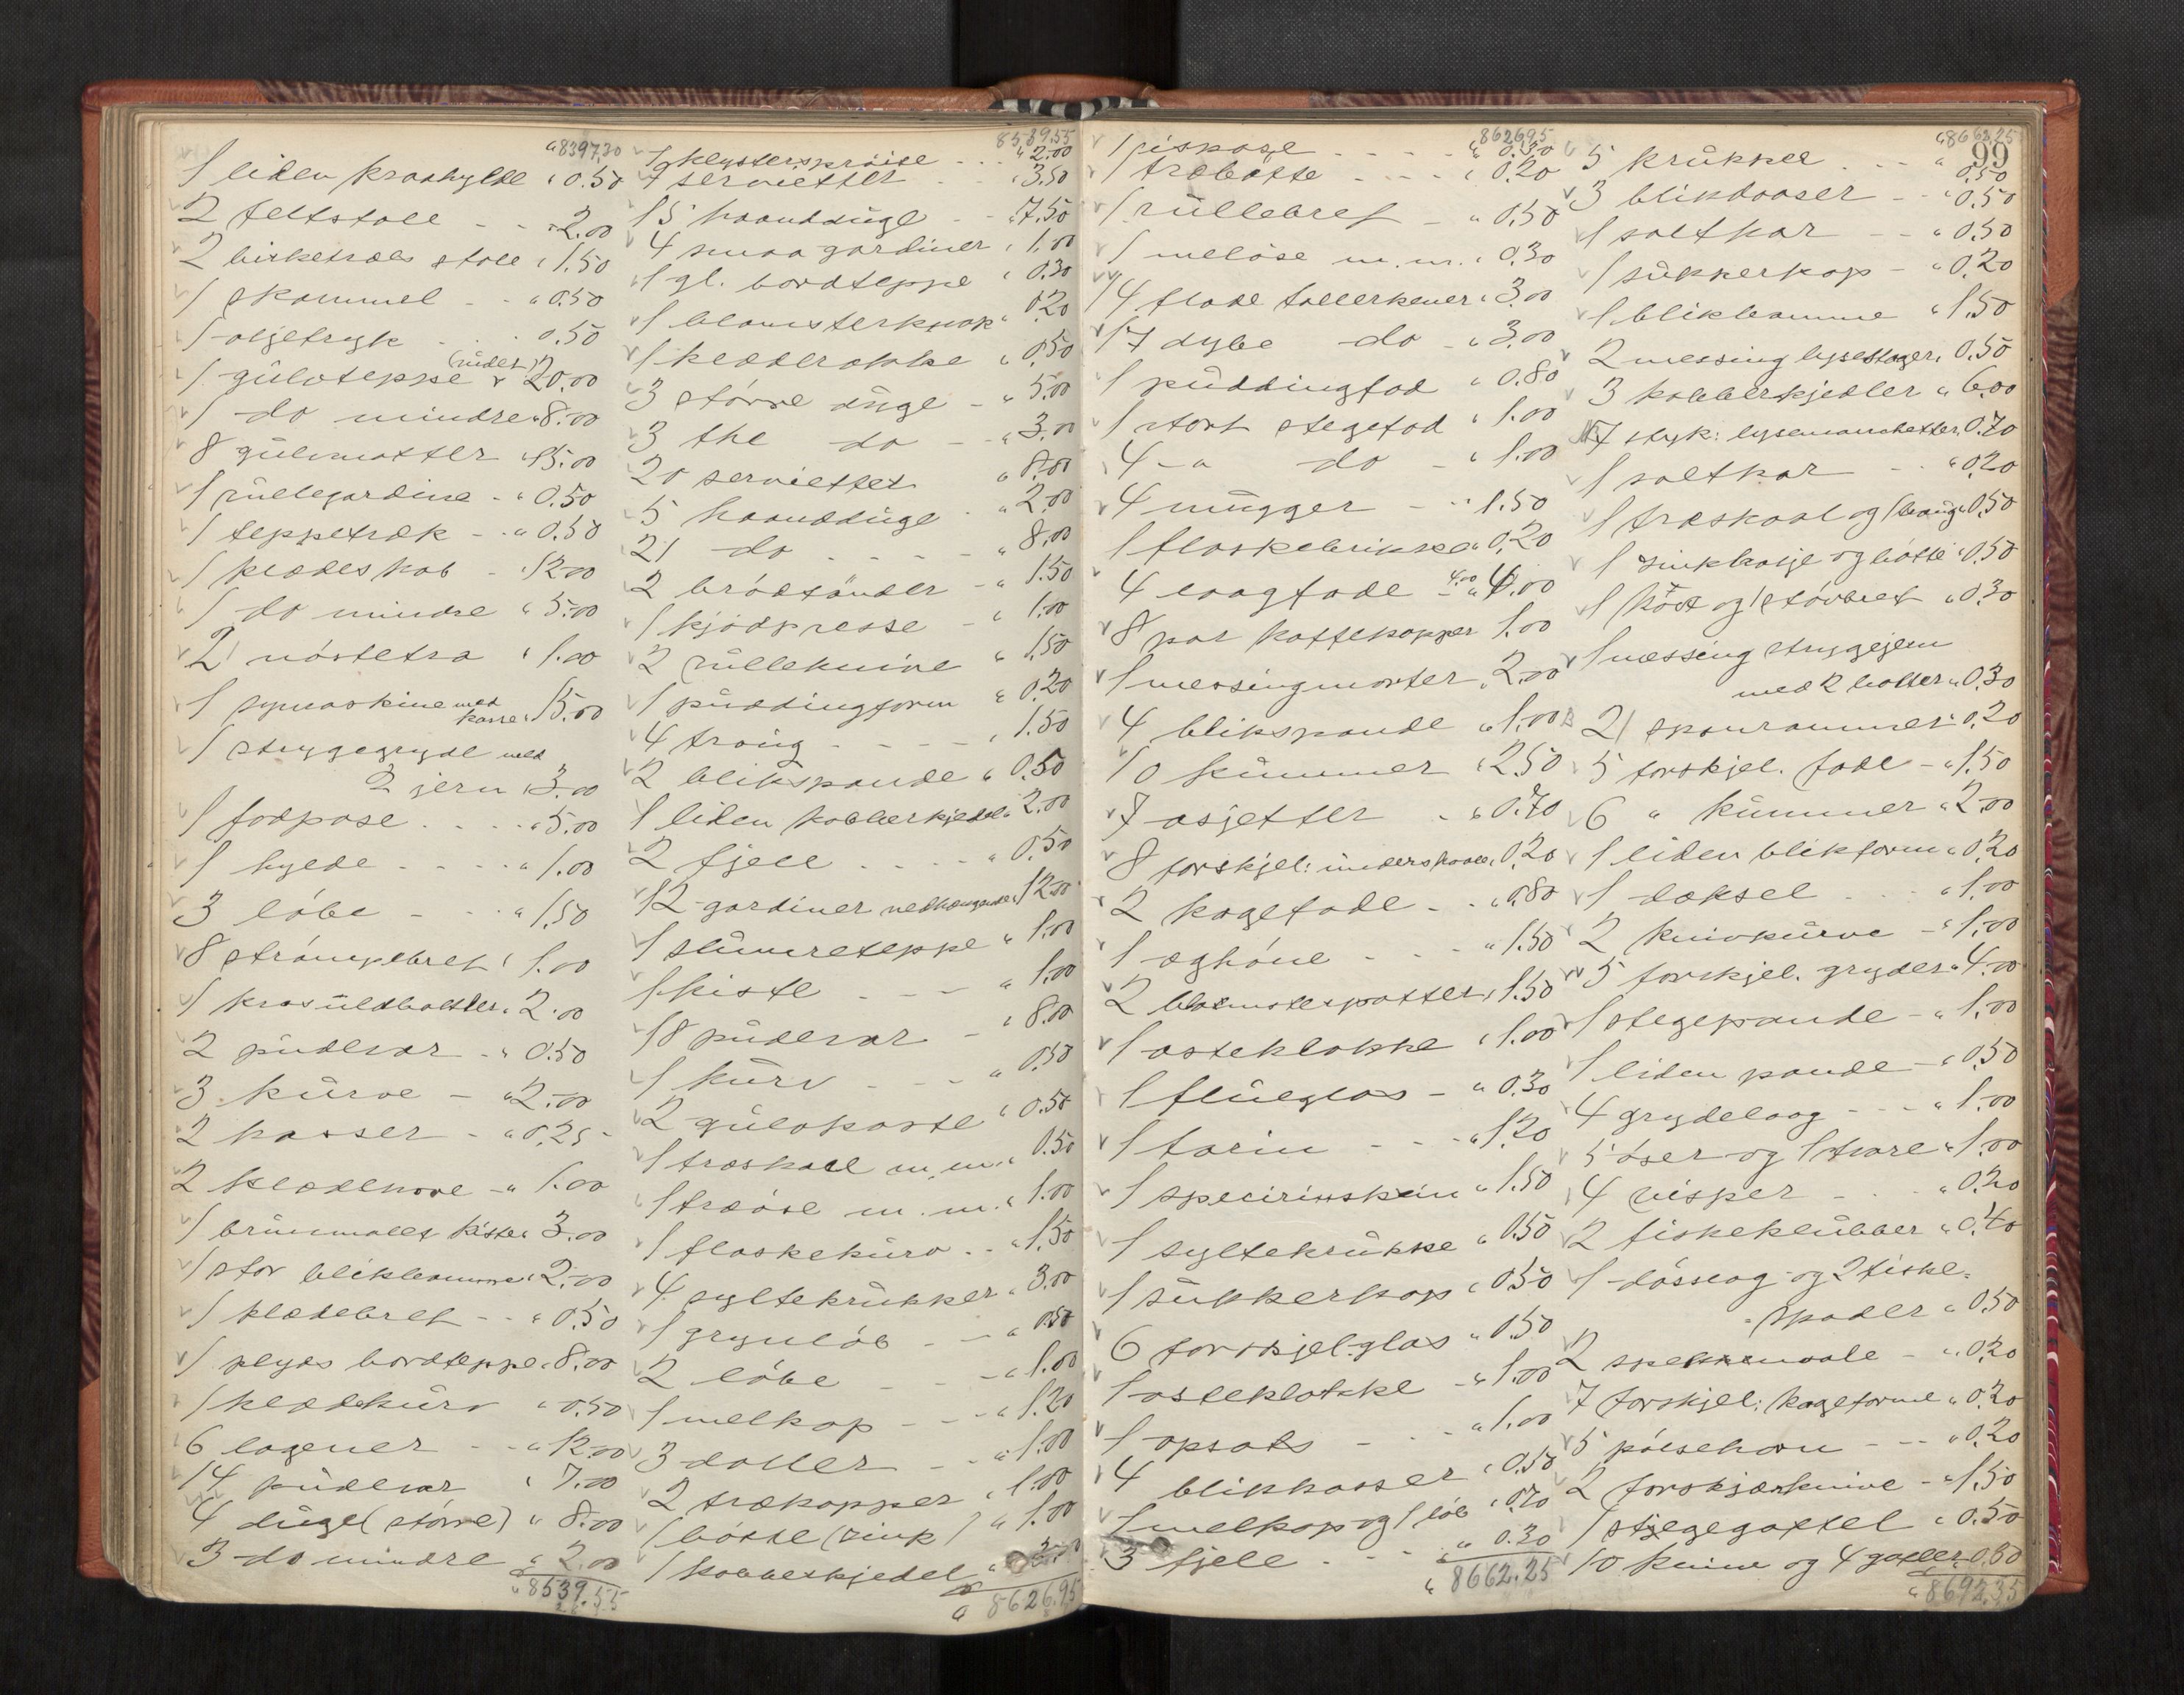 " 8397,20
1 liden kraahylde " 0.50
2 feltstole - - " 2.00
2 birketræes stole " 1.50
1 skammel - - " 0.50
1 oljetryk - - 0.50
1 gülvteppe (rüdet) " 20.00
1 do mindre " 8.00
8 gülvmatter " 15.00
1 rüllegardine - " 0.50
1 teppetræk - - " 0.50
1 klædeskab - " 12.00
1 do mindre " 5.00
2 nöstetræ " 1.00
1 symaskine med kasse " 15.00
1 strygegryde med
2 jern " 3.00
1 fodpose - - - " 5.00
1 hylde - - - - " 1.00
3 löbe - - - " 1.50
8 strömpebret " 1.00
1 krasüldbolster " 2.00
2 püdevar - " 0.50
3 kürve - " 2.00
2 kasser - " 0.25
2 klædesnore - " 1.00
1 brünmalet kiste " 3.00
1 stor blikkamme " 2.00
1 klædebret - - " 0.50
1 plyds bordteppe " 8.00
1 klædekürv " 0.50
6 lagener - - " 12.00
14 püdevar " 7.00
4 düge (större) " 8.00
3 do mindre " 2.00
" 8539.55
8539.55
1 klystersprøite - - " 2.00
7 servietter - - " 3.50
15 haanddüge - - " 7.50
4 smaa gardiner " 1.00
1 gl. bordteppe " 0.30
1 blomsterkrak " 0.20
1 klæderokke " 0.50
3 större düge - " 5.00
3 the do - - " 3.00
20 servietter " 8.00
5 haanddüge - " 2.00
21 do - - - - " 8.00
2 brödfönder - " 1.50
1 kjödpresse - " 1.00
2 rülleknive " 1.50
1 püddingform " 0.20
4 traüg - - - - " 1.50
2 blikspande " 0.50
1 liden kobberkjedel " 2.00
2 fjele - - - - " 0.50
12 gardiner nedhængende " 12.00
1 slümreteppe " 1.00
1 kiste - - - " 1.00
18 püdevar - " 8.00
1 kürv - - - " 0.50
2 gülvkoste " 0.50
1 træskaal m.m. " 0.50
1 træöse m.m. " 1.00
1 flaskekürv - - " 1.50
4 syltekrükker " 3.00
1 grynlöb - - " 0.50
2 löbe - - - " 1.00
1 melkop - - - " 1.20
3 daller - - " 1.00
2 trækopper " 1.00
1 bötte (zink) " 1.00
1 kobberkjedel "
" 8626.95
8626.95
1 ispose - - - - " 0.50
1 træbötte - - - - " 0.20
1 rüllebret - " 0.50
1 melöse m.m. " 0.30
14 flade tallerkener " 3.00
17 dybe do - " 3.00
1 püddingfad " 0.80
1 stort stegefad " 1.00
4 - " do - " 1.00
4 mügger - - " 1.50
1 flaskebrikke " 0.20
4 laagfade 4.00 " 4.00
8 par kaffekopper 1.00
1 messingmorter " 2.00
4 blikspande " 1.00
10 kümmer " 2.50
7 asjetter - " 0.70
8 forskjel: ünderskaale " 0.20
2 kagefade - - " 0.80
1 æghöne - - - " 1.50
2 blomsterpotter " 1.50
1 osteklokke " 1.00
1 flüeglas - " 0.30
1 tarin - - - " 1.20
1 specirinskrin " 1.50
1 syltekrükke " 0.50
1 sükkerkop " 0.50
6 forskjel. glas " 0.50
1 osteklokke - " 1.00
1 opsats - - - " 1.00
4 blikkasser " 0.50
1 melkop og 1 löb " 0.70
3 fjele - - - " 0.30
" 8662.25
" 8662.25
99
5 krükker - - - " 0.50
3 blikdaaser - - " 0.50
1 saltkar - - " 0.50
1 sükkerkop - " 0.20
1 blikkamme " 1.50
2 messing lysestager " 0.50
3 kobberkjedler " 6.00
7 styk: lysemanchetter " 0.70
1 saltkar - - " 0.20
1 træskaal og 1 traüg " 0.50
1 zinkbalje og bötte " 0.50
1 kost og 1 støvbret " 0.30
1 messing strygejern
med 2 bolter " 0.30
21 spanrammer " 0.20
5 forskjel. fade - " 1.50
6 " kümmer " 2.00
1 liden blikform " 0.20
1 dæksel - - " 1.00
2 knivkürve - " 1.00
5 forskjel. gryder " 4.00
1 stegepande - " 1.00
1 liden pande - " 0.50
4 grydelaag - - - " 1.00
5 öser og 1 tvare " 1.00
4 visper - - - " 0.20
2 fiskeklübber " 0.40
1 dösslag og 2 fiske-
spader " 0.50
2 - " 0.20
7 forskjel: kageforme " 0.20
5 pölsehorn - - " 0.20
2 forskjærknive - " 1.50
1 stegegaffel " 0.50
10 knive og 4 gafler 0.80
" 8692.35